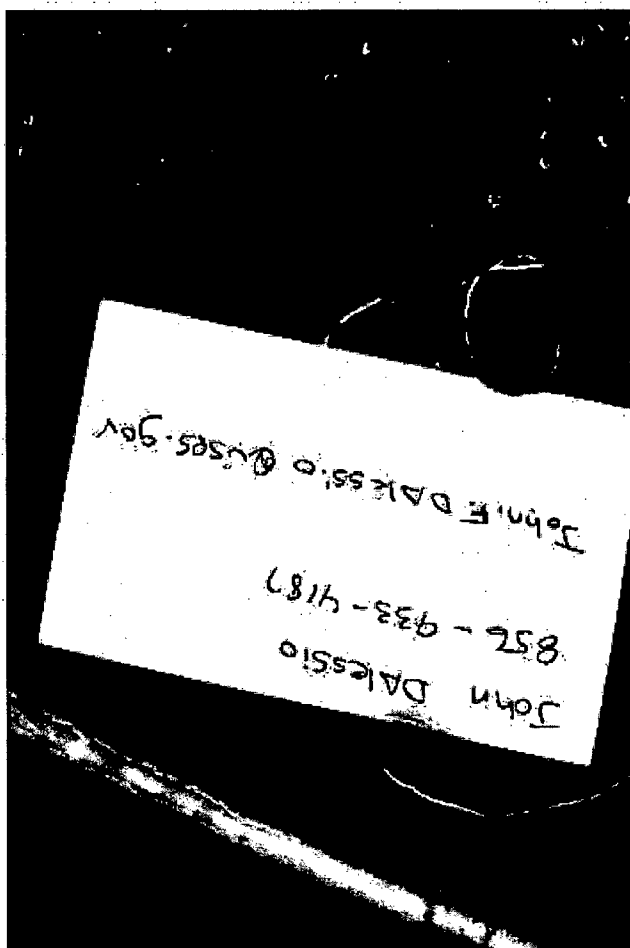 John DAlessio
856 - 933-4187
John.E DAlessio @usps.gov